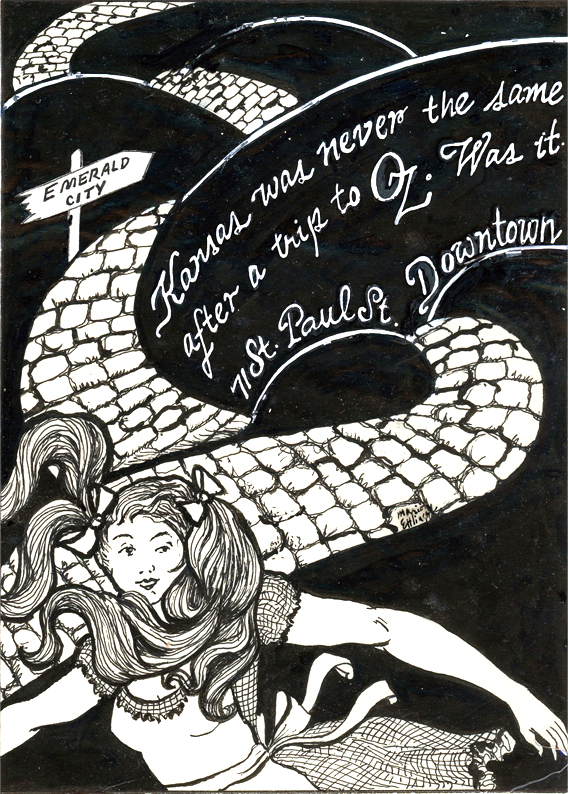 Kansas was never the same
after a trip to Oz. Was it
71 St. Paul St. Downtown
EMERALD
CITY